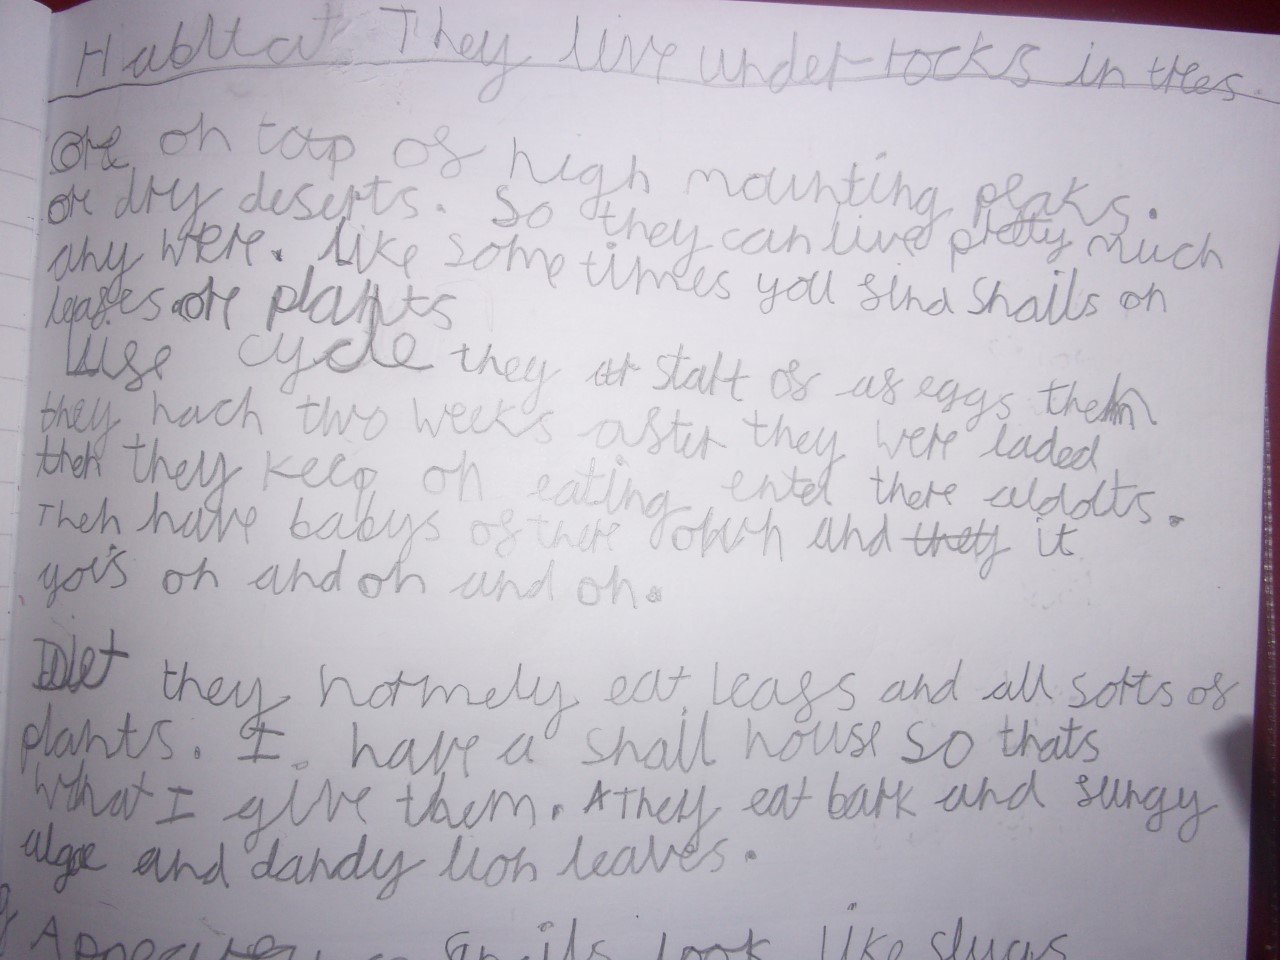 Habitat They live under rocks in trees.
ore on top of high mounting peaks.
ore dry deserts. So they can live pretty much
any were. Like sometimes you find Snails on
leafes ore plants
Life cycle they start of as eggs then
they hach two weeks after they were laded
then they keep on eating entel there aldolts.
Then have babys of there own and they it
gois on and on and on.
Diet they normely eat leafs and all sorts of
plants. I have a snail house so thats
what I give them. They eat bark and fungy
algae and dandy lion leaves.
Snails look like slugs